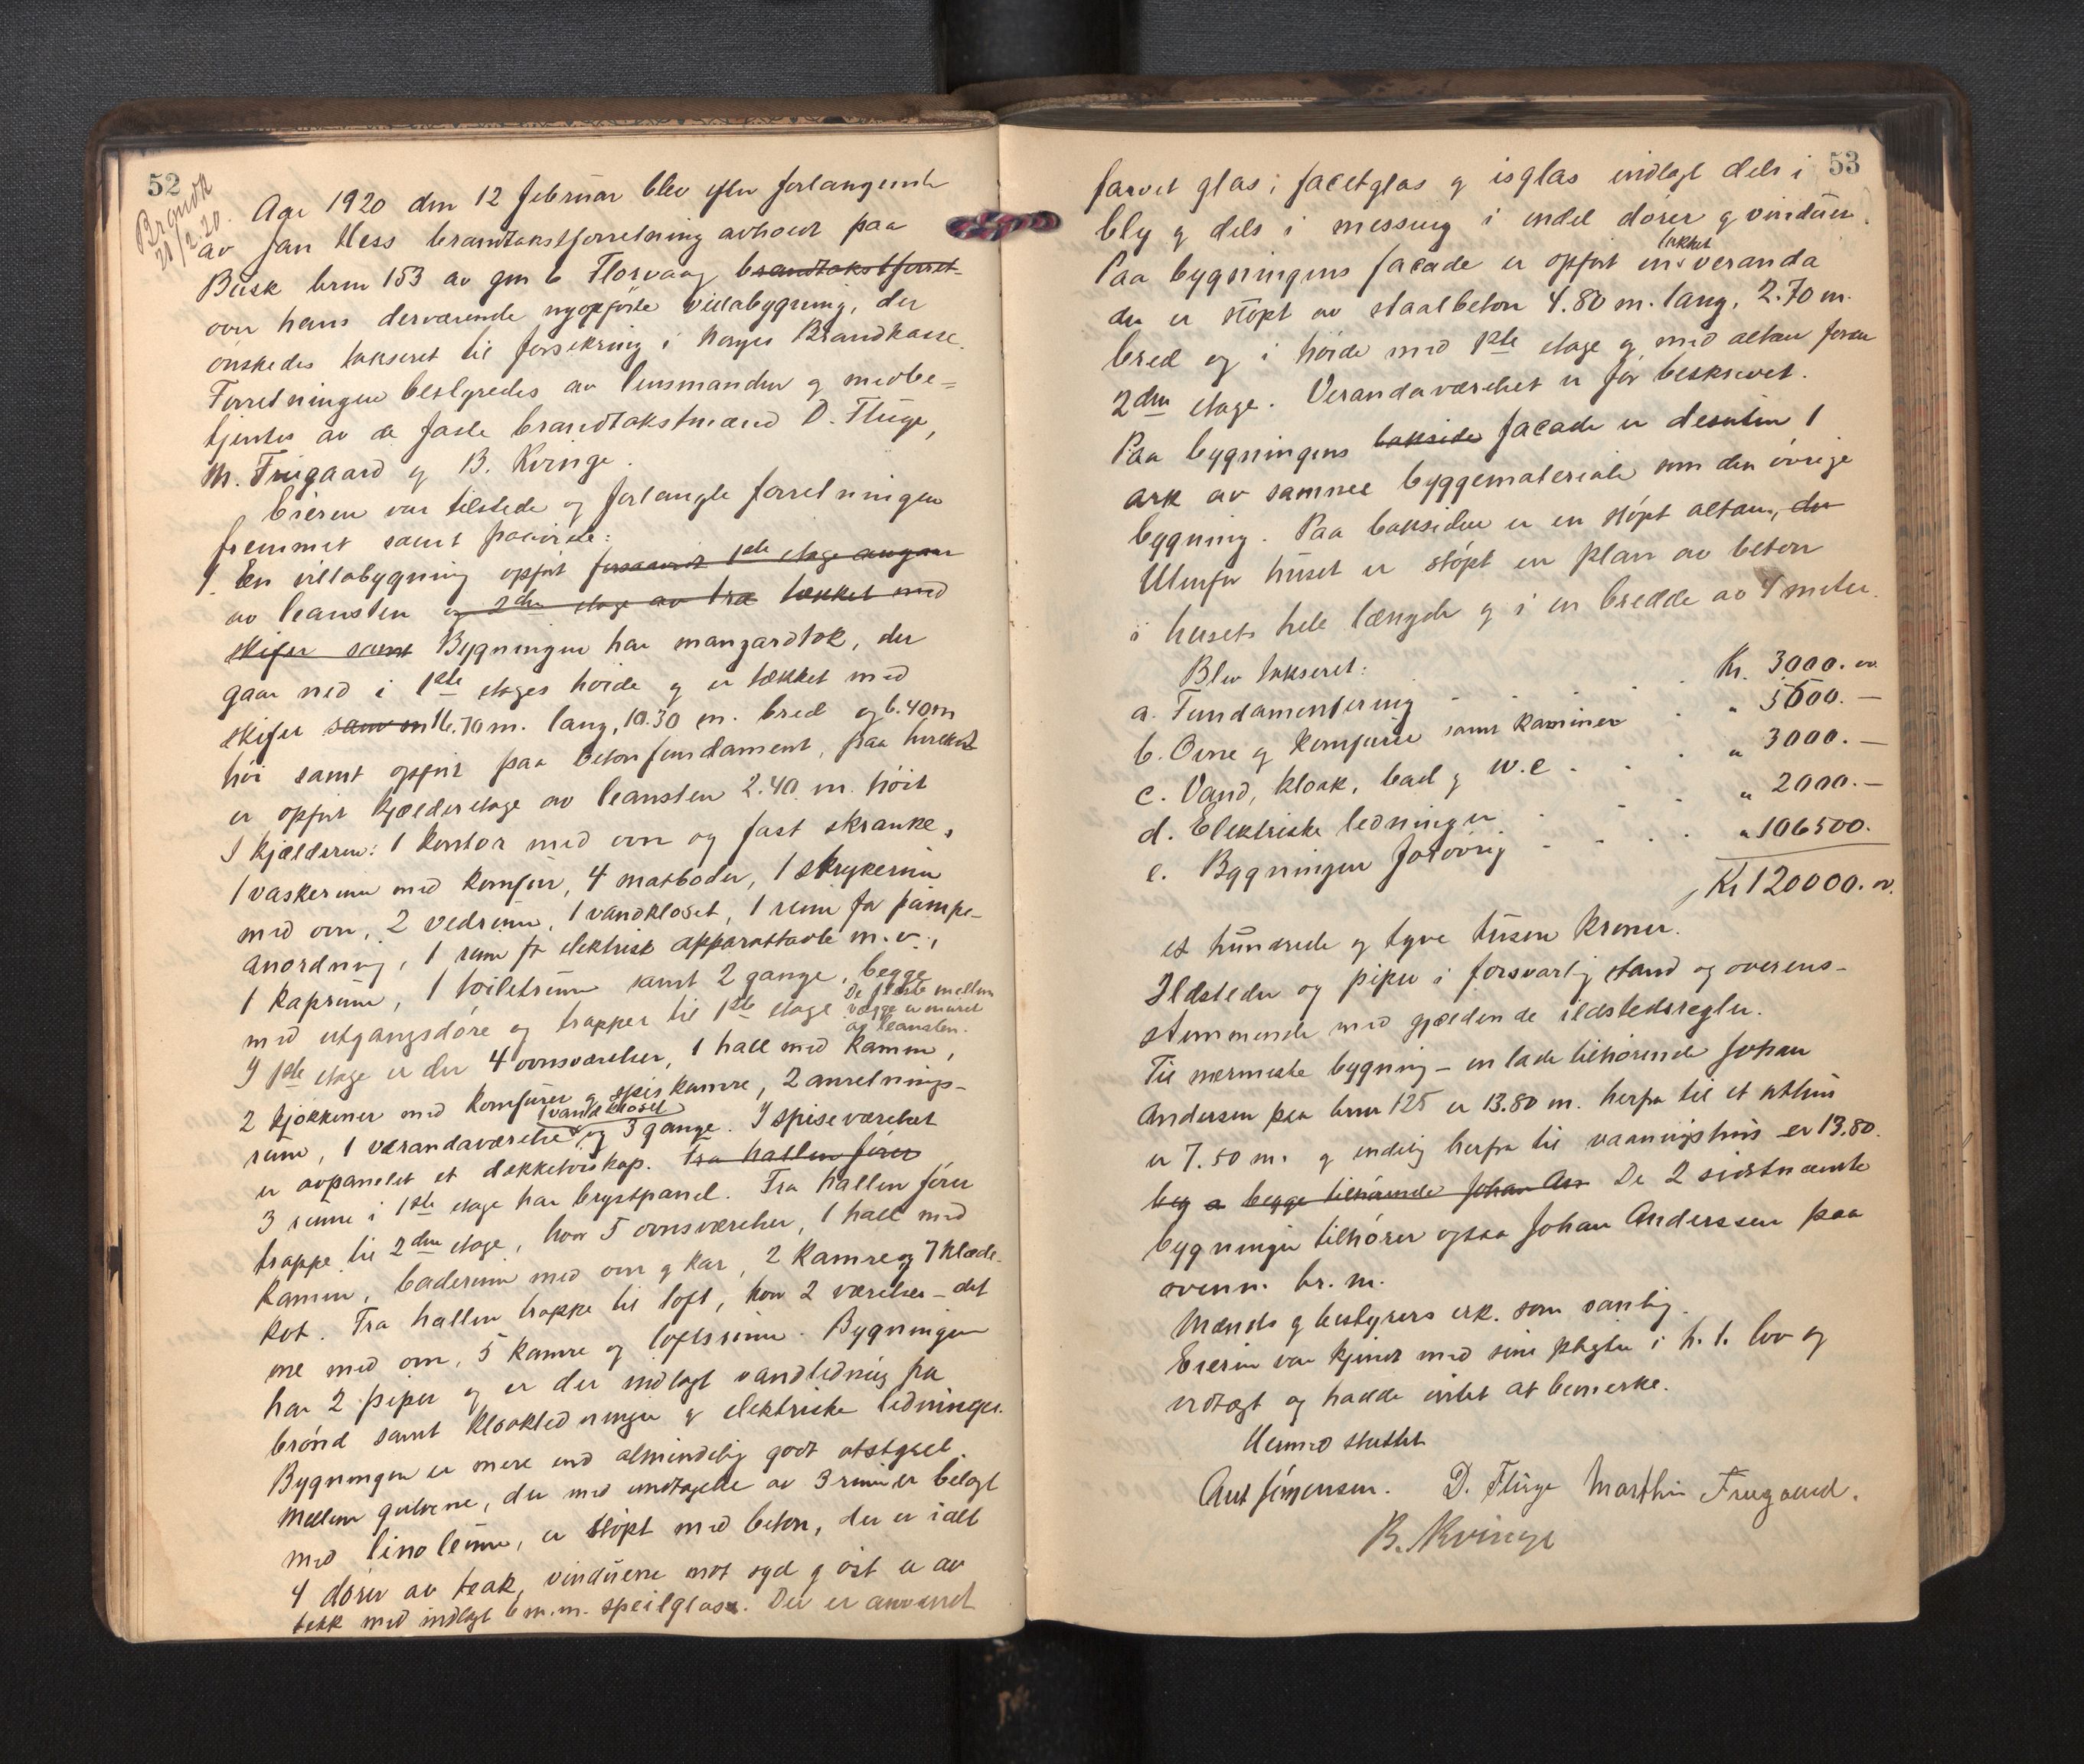 52
Brandk
21/2.20.
Aar 1920 den 12 februar blev efter forlangende
av Jan Hess brandtakstforretning avholdt paa
Busk brnr 153 av gnr 6 Florvaag brandtakstforret-
over hans derværende nyopførte villabygning, der
ønskedes takseret til forsikring i Norges Brandkasse.
Forretningen bestyredes av lensmanden og medbe=
tjentes av de faste brandtakstmænd D. Fluge,
M. Frugaard og B. Kvinge.
Eieren var tilstede og forlangte forretningen
fremmet samt paaviste:
1. En villabygning opført forsaavidt 1ste etage angaar
av leansten og 2den etage av træ tækket med
skifer samt Bygningen har mangardtak, der
gaar ned i 1ste etages høide og er tækket med
skifer samt 16.70 m. lang, 10.30 m. bred og 6.40 m
høi samt opført paa betonfundament, paa hvilket
er opført kjælderetage av leansten 2.40 m. høit
I kjælderen: 1 kontor med ovn og fast skranke,
1 vaskerum med komfur, 4 matboder, 1 strykerum
med ovn, 2 vedrum, 1 vandkloset, 1 rum for pumpe-
anordning, 1 rum for elektrisk apparattavle m.v.,
1 kaprum, 1 toiletrum samt 2 gange, begge
med utgangsdøre og trapper til 1ste etage. De fleste mellem
vægge er muret
av leansten.
I 1ste etage er der 4 ovnsværelser, 1 hall med kamin,
2 kjøkkener med komfurer og spiskamre, 2 anretnings-
rum, 1 værandaværelse, 1 vandkloset og 3 gange. I spiseværelset
er avpanelet et dækketøiskap. Fra hallen fører
3 rum i 1ste etage har brystpanel. Fra hallen fører
trappe til 2den etage, hvor 5 ovnsværelser, 1 hall med
kamin, baderum med ovn og kar, 2 kamre og 7 klæde-
kot. Fra hallen trappe til loft, hvor 2 værelser – det
ene med ovn, 5 kamre og loftsrum. Bygningen
har 2 piper og er der indlagt vandledning fra
brønd samt kloakledninger og elektriske ledninger.
Bygningen er mere end almindelig godt utstyret.
Mellem gulvene, der med undtagelse av 3 rum er belagt
med linoleum, er støpt med beton, der er ialt
4 dører av teak, vinduerne mot syd og øst er av
teak med indlagt 6 m.m. speilglas. Der er anvendt
53
farvet glas, facetglas og isglas indlagt dels i
bly og dels i messing i endel dører og vinduer.
Paa bygningens facade er opført en lukket veranda
der er støpt av staalbeton 4.80 m. lang, 2.70 m.
bred og i høide med 1ste etage og med altan foran
2den etage. Verandaværelset er før beskrevet.
Paa bygningens bakside facade er desuten 1
ark av samme byggemateriale som den øvrige
bygning. Paa baksiden er en støpt altan, der
Utenfor huset er støpt en plan av beton
i husets hele længde og i en bredde av 4 meter.
Blev takseret:
a. Fundamentering . . . Kr. 3000. oo
b. Ovne og komfurer samt kaminer . " 5500. —
c. Vand, kloak, bad og w.c . . . " 3000. —
d. Elektriske ledninger . . . " 2000. —
e. Bygningen forøvrig . . . . " 106500.
Kr 120000. oo.
et hundrede og tyve tusen kroner.
Ildsteder og piper i forsvarlig stand og overens-
stemmende med gjældende ildstedsregler.
Til nærmeste bygning – en lade tilhørende Johan
Andersen paa brnr 125 er 13.80 m. herfra til et uthus
er 7.50 m. og endelig herfra til vaaningshus er 13.80.
beg a begge tilhørende Johan An De 2 sidstnævnte
bygninger tilhører ogsaa Johan Anderssen paa
ovenn. br. nr.
Mænds og bestyrers erk. som vanlig.
Eieren var kjendt med sine pligter i h. t. lov og
vedtægt og hadde intet at bemerke.
Hermed sluttet
Ant Simonsen. D. Fluge Marthin Frugaard.
B. Kvinge